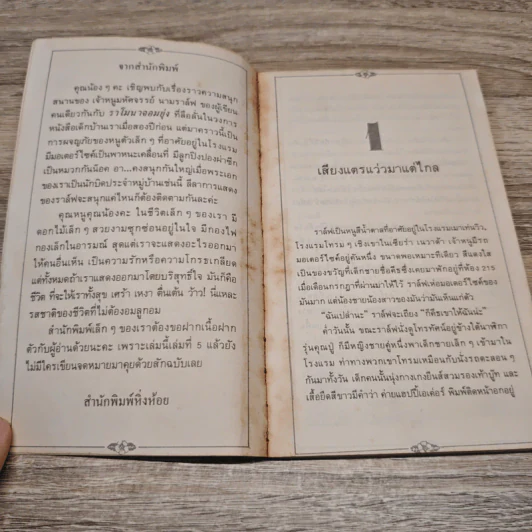 จากสำนักพิมพ์
คุณน้อง ๆ คะ เชิญพบกับเรื่องราวความสนุก
สนานของ เจ้าหนูมหัศจรรย์ นามราล์ฟ ของผู้เขียน
คนเดียวกันกับ ราโมนาจอมยุ่ง ที่ลือลั่นในวงการ
หนังสือเด็กบ้านเราเมื่อสองปีก่อน แต่มาคราวนี้เป็น
การผจญภัยของหนูตัวเล็กๆ ที่อาศัยอยู่ในโรงแรม
มีมอเตอร์ไซค์เป็นพาหนะเคลื่อนที่ มีลูกปิงปองผ่าซีก
เป็นหมวกกันน็อค อา...คงสนุกกันใหญ่เมื่อพระเอก
ของเราเป็นนักบิดประจำหมู่บ้านเช่นนี้ ลีลาการแสดง
ของราล์ฟจะสนุกแค่ไหนก็ต้องติดตามกันละค่ะ
คุณหนูคุณน้องคะ ในชีวิตเล็กๆ ของเรา มี
ดอกไม้เล็ก ๆ สวยงามซุกซ่อนอยู่ในใจ มีกองไฟ
กองเล็กในอารมณ์ สุดแต่เราจะแสดงอะไรออกมา
ให้คนอื่นเห็น เป็นความรักหรือความโกรธเกลียด
แต่ทั้งหมดถ้าเราแสดงออกมาโดยบริสุทธิ์ใจ มันก็คือ
ชีวิต ที่จะให้เราทั้งสุข เศร้า เหงา ตื่นเต้น ว้าว! นี่แหละ
รสชาติของชีวิตที่ไม่ต้องอมลูกอม
สำนักพิมพ์เล็กๆ ของเราต้องขอฝากเนื้อฝาก
ตัวกับผู้อ่านด้วยนะคะ เพราะเล่มนี้เล่มที่ 5 แล้วยัง
ไม่มีใครเขียนจดหมายมาคุยด้วยสักฉบับเลย
สำนักพิมพ์หิ่งห้อย
1
เสียงแตรแว่วมาแต่ไกล
ราล์ฟเป็นหนูสีน้ำตาลที่อาศัยอยู่ในโรงแรมเมาท์นวิว,
โรงแรมโทรม ๆ เชิงเขาในเซียร่า เนวาด้า เจ้าหนูมีรถ
มอเตอร์ไซค์อยู่คันหนึ่ง ขนาดพอเหมาะทีเดียว สีแดงใส
เป็นของขวัญที่เด็กชายชื่อคีธซึ่งเคยมาพักอยู่ที่ห้อง 215
เมื่อเดือนกรกฎาที่ผ่านมาให้ไว้ ราล์ฟห่วงมอเตอร์ไซค์ของ
มันมาก แต่น้องชายน้องสาวของมันว่ามันเห็นแก่ตัว
"ฉันเปล่านะ" ราล์ฟจะเถียง "ก็คีธเขาให้ฉันน่ะ"
ค่ำวันนั้น ขณะราล์ฟนั่งดูโทรทัศน์อยู่ข้างใต้นาฬิกา
รุ่นคุณปู่ ก็มีหญิงชายคู่หนึ่งพาเด็กชายเล็กๆ เข้ามาใน
โรงแรม ท่าทางพวกเขาโทรมเหมือนกับนั่งรถตะลอน ๆ
กันมาทั้งวัน เด็กคนนั้นนุ่งกางเกงยีนส์สวมรองเท้าบู๊ท และ
เสื้อยืดสีขาวมีคำว่า ค่ายแฮปปี้เอเคอร์ พิมพ์ติดหน้าอกอยู่